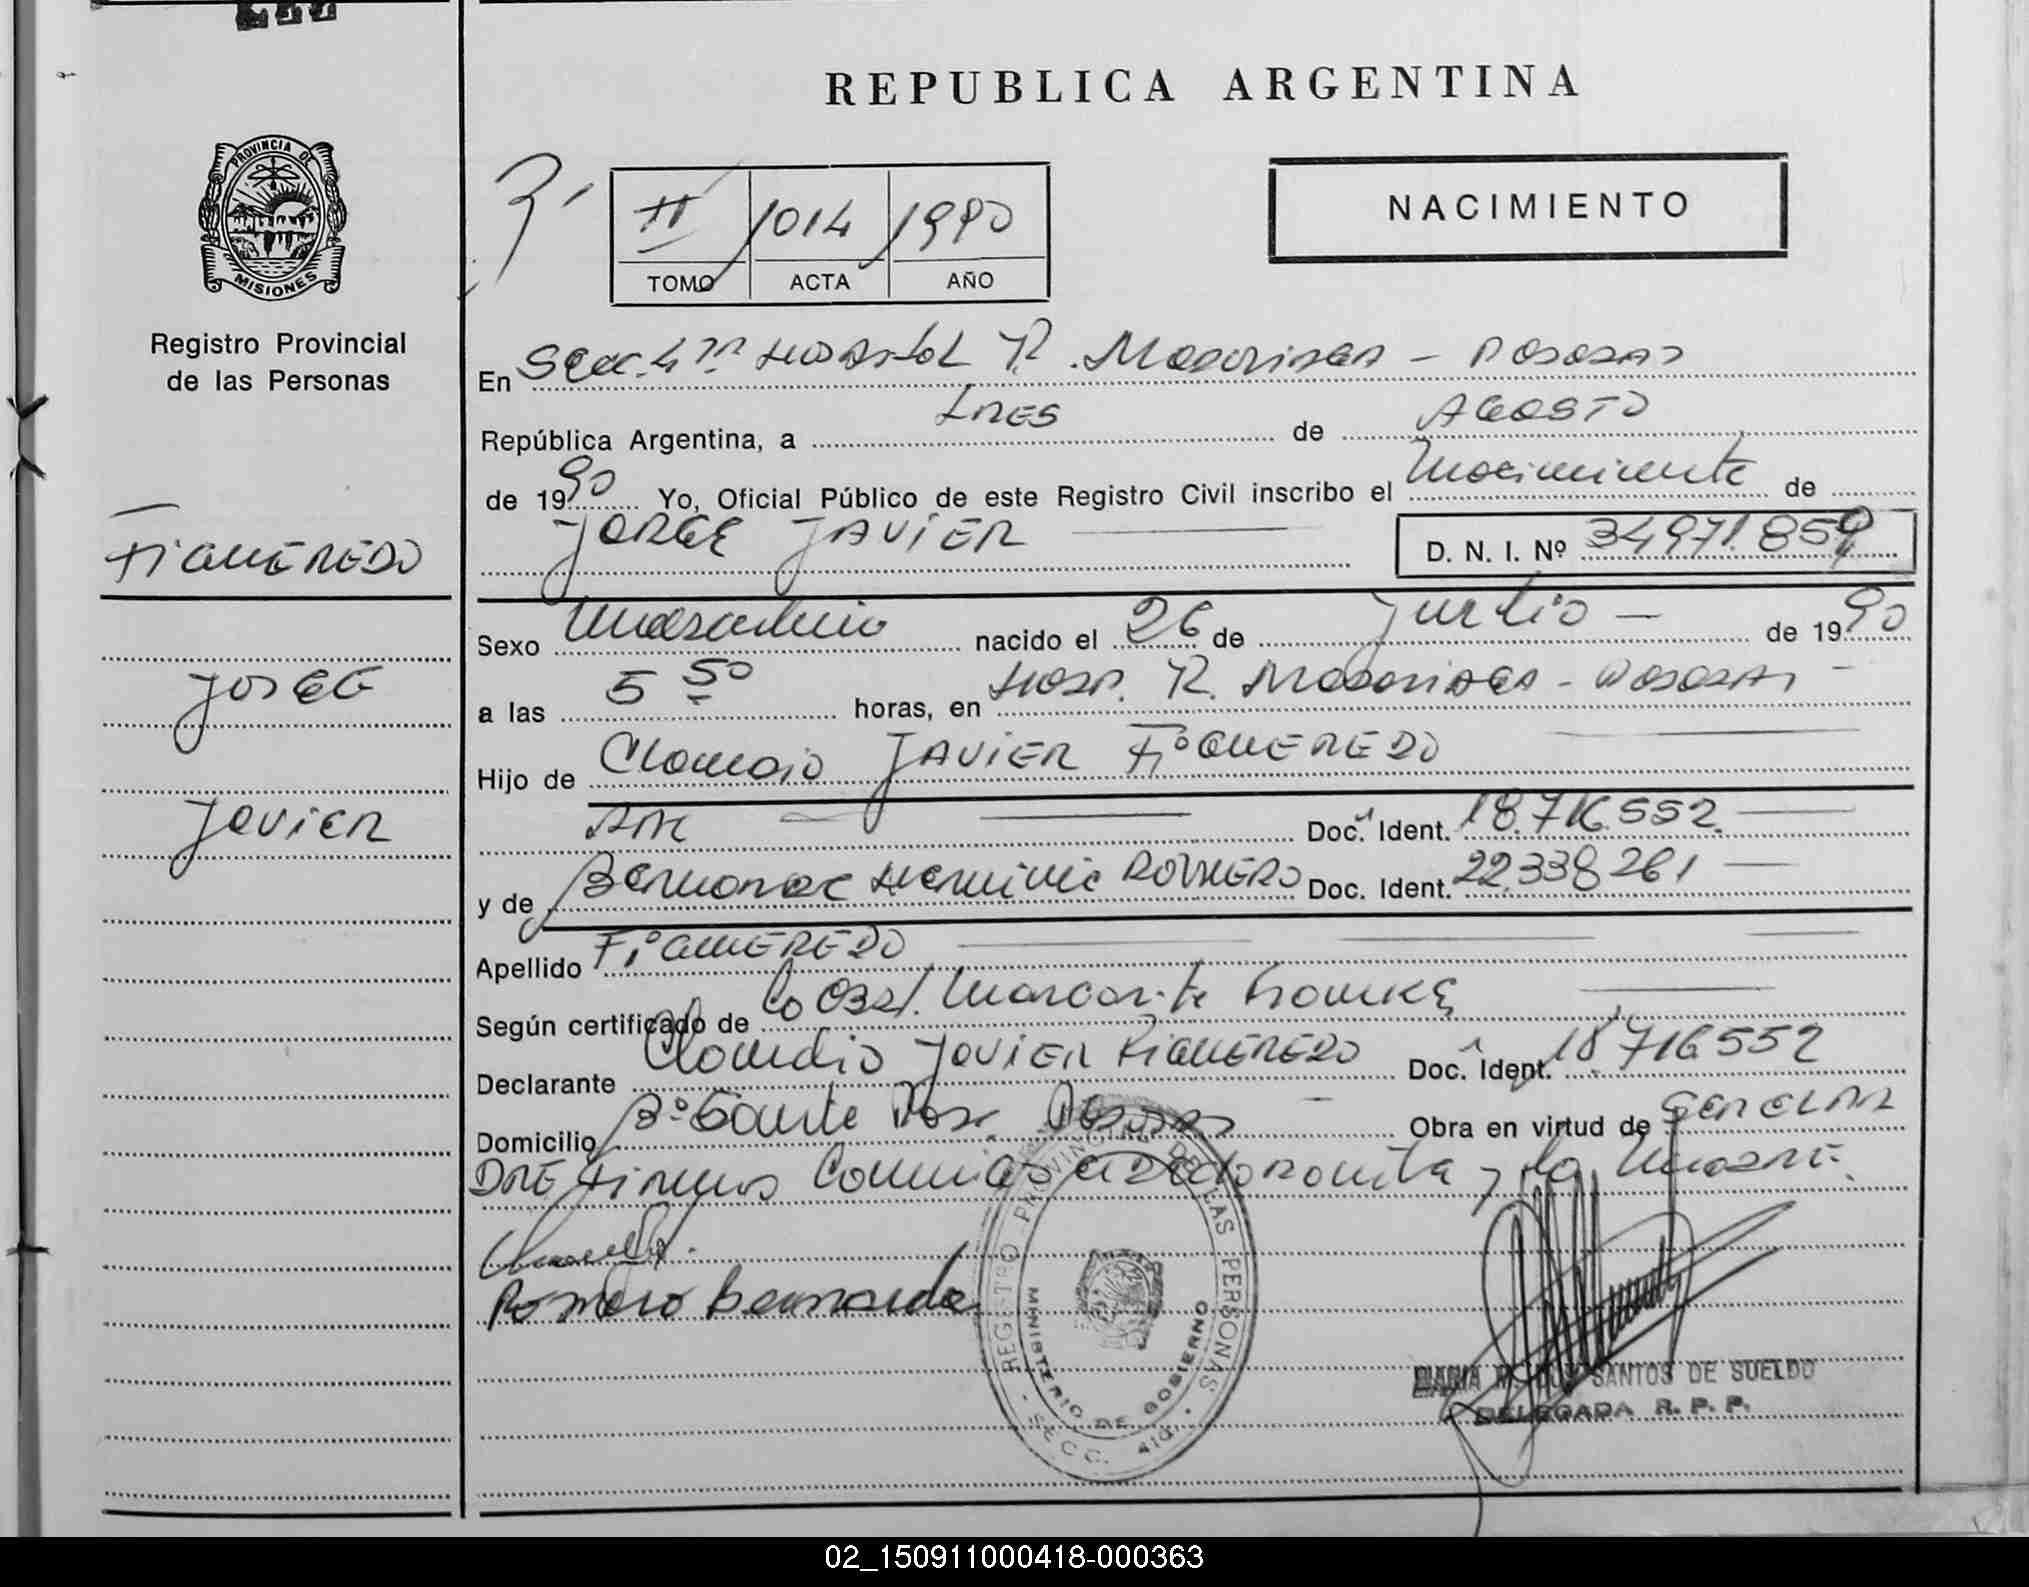 REPUBLICA ARGENTINA
PROVINCIA DE
MISIONES
Registro Provincial
de las Personas
II 1014 1990
TOMO ACTA AÑO
NACIMIENTO
En Secc. 4ta Hospital R. Madariaga - Posadas
República Argentina, a tres de Agosto
de 1990 Yo, Oficial Público de este Registro Civil inscribo el Nacimiento de
JORGE JAVIER D. N. I. Nº 34971859
FIGUEREDO
JORGE
Javier
Sexo Masculino nacido el 26 de Julio de 1990
a las 5 50 horas, en Hosp. R. Madariaga - Posadas -
Hijo de Claudio JAVIER FIGUEREDO
Doc. Ident. 18.716.552
y de Bernarda Herminia ROMERO Doc. Ident. 22.338.261
Apellido FIGUEREDO
Según certificado de la Obst. Margarita
Declarante Claudio Javier FIGUEREDO Doc. Ident. 18.716552
Domicilio Posadas Obra en virtud de ser el PA
DRE Firma y la Madre.
Romero bernarda
REGISTRO PROVINCIAL DE LAS PERSONAS
MINISTERIO DE GOBIERNO
- SECC. 4ta. -
MARIA M. DOS SANTOS DE SUELDO
DELEGADA R. P. P.
02_150911000418-000363